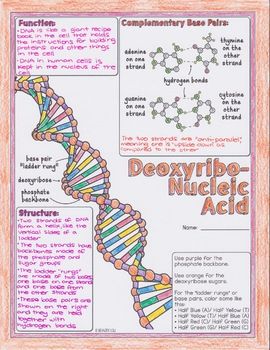 Function:
•DNA is like a giant recipe
book in the cell that holds
the instructions for building
proteins and other things
in the cell
•DNA in human cells is
kept in the nucleus of the
cell
Complementary Base Pairs:
adenine on
one strand
thymine
on the
other
strand
hydrogen bonds
guanine on
one strand
cytosine
on the
other
strand
The two strands are "anti-parallel",
meaning one is "upside down" as
compared to the other
base pair
"ladder rung"
deoxyribose
phosphate
backbone
Deoxyribo-
Nucleic
Acid
Name:
Structure:
•Two strands of DNA
form a helix, like the
vertical sides of a
ladder
•The two strands have
backbones made of
phosphate and sugar
groups
•The ladder "rungs"
are made of two bases,
one base on one strand
and one base from
the other strands
•These base pairs are
shown on the right
and they are held
together with
hydrogen bonds
Use purple for the
phosphate backbone.
Use orange for the
deoxyribose sugars.
For the "ladder rungs" or
base pairs, color some like
this:
• Half Blue (A)/ Half Yellow (T)
• Half Yellow (T)/ Half Blue (A)
• Half Red (C)/ Half Green (G)
• Half Green (G)/ Half Red (C)